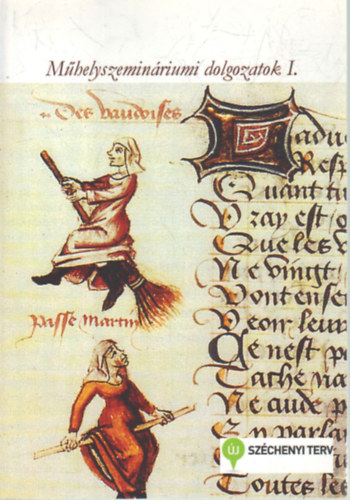 Műhelyszemináriumi dolgozatok I.
Des vaudoises
passe martin
Quant
Vray est
Que les v
Ne vingt
Vont ense
Veoir leur
Ce nest p
Tache
Ne aude p
En parla
Toutes les
ÚJ SZÉCHENYI TERV